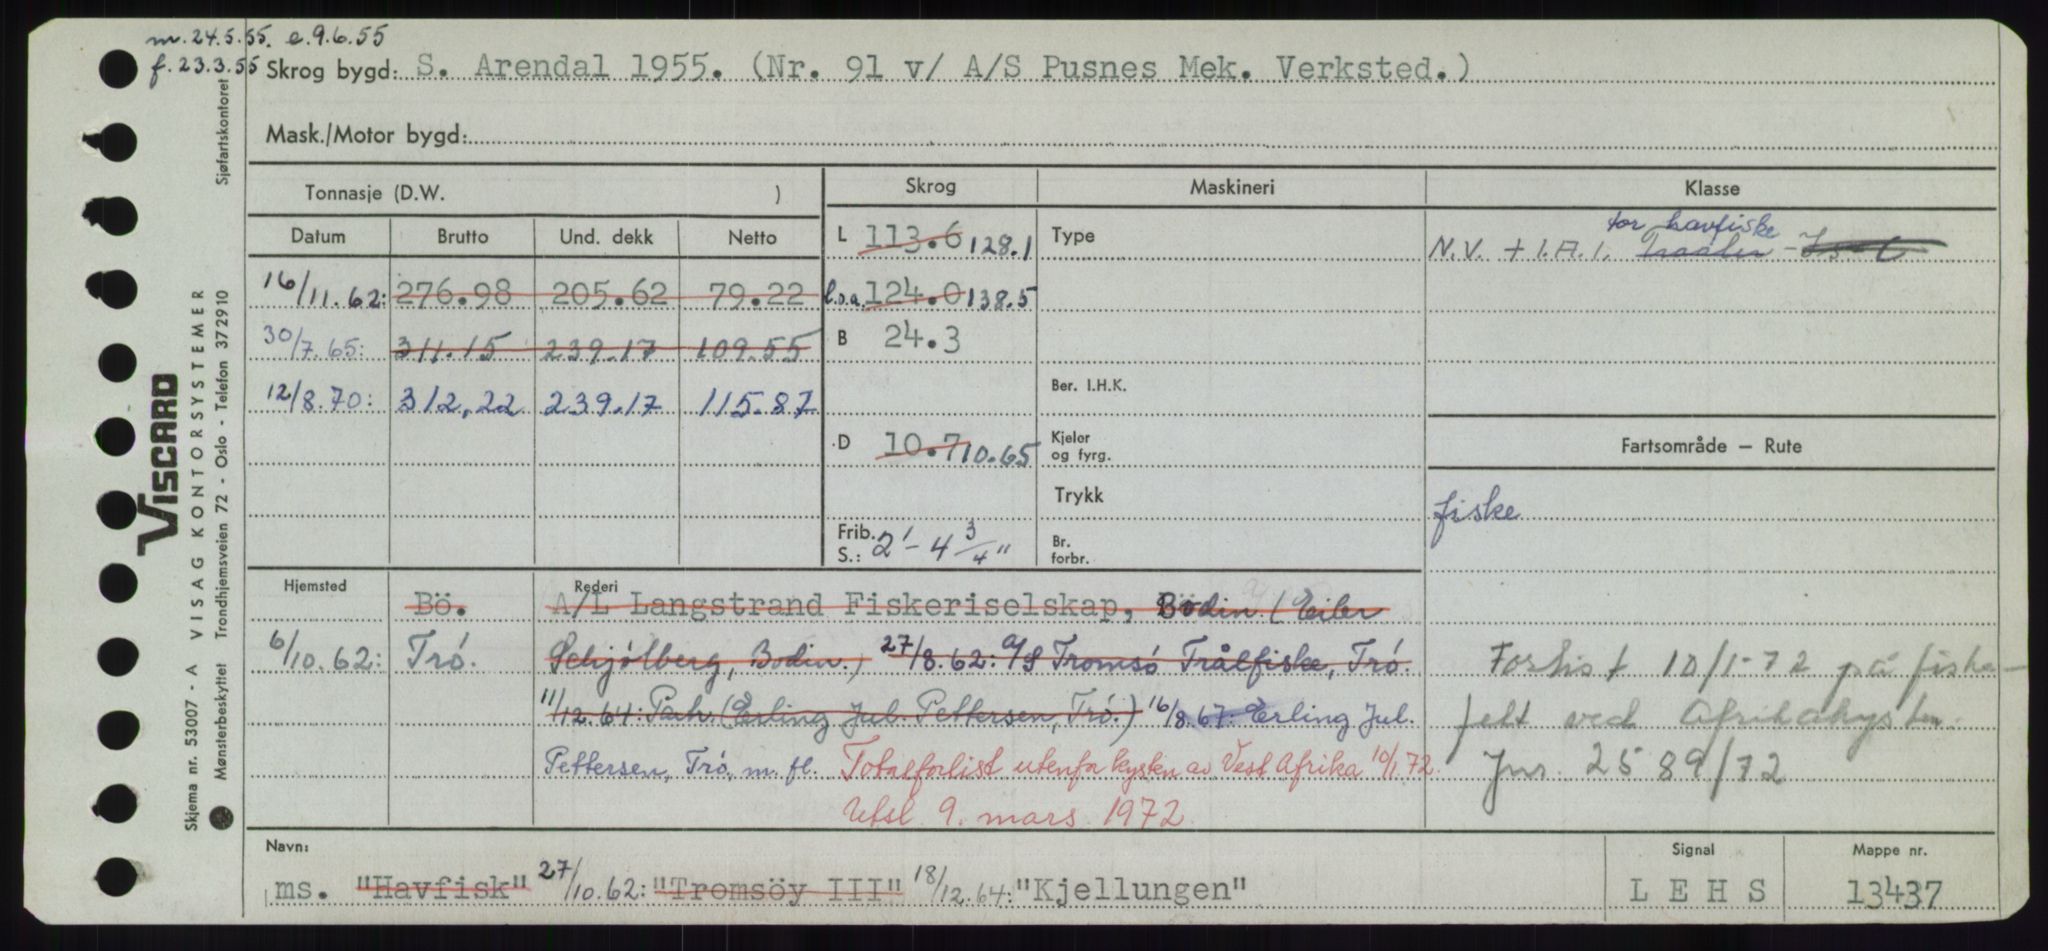 m. 24.5.55. e. 9.6.55
f. 23.3.55 Skrog bygd: S. Arendal 1955. (Nr. 91 v/ A/S Pusnes Mek. Verksted.)
Mask./Motor bygd:
Tonnasje (D.W. ) Skrog Maskineri Klasse
Datum Brutto Und. dekk Netto L 113.6 128.1 Type
for havfiske
N.V. + 1.A.1. Traaler
16/11.62: 276.98 205.62 79.22 l.o.a. 124.0 138.5
30/7.65: 311.15 239.17 109.55 B 24.3
12/8.70: 312,22 239.17 115.87 Ber. I.H.K.
D 10.7 10.65 Kjeler og fyrg. Fartsområde — Rute
Trykk fiske
Frib. S.: 2'-4 3/4" Br. forbr.
Hjemsted Rederi
Bö. A/L Langstrand Fiskeriselskap, Bodin. (Eiler
6/10.62: Trø. Schjølberg, Bodin.) 27/8.62: A/S Tromsø Trålfiske, Trø.
11/12.64: Patr. (Erling Jul. Pettersen, Trø.) 16/8.67: Erling Jul.
Pettersen, Trø, m. fl. Totalforlist utenfor kysten av Vest Afrika 10/1.72.
Utsl. 9. mars 1972.
Forlist 10/1-72 på fiske-
felt ved Afrikakysten.
Jnr. 2589/72
Navn: Signal Mappe nr.
ms. "Havfisk" 27/10.62: "Tromsöy III" 18/12.64: "Kjellungen" LEHS 13437
VISCARD
Skjema nr. 53007 - A VISAG KONTORSYSTEMER Sjøfartskontoret
Mønsterbeskyttet Trondhjemsveien 72 - Oslo - Telefon 372910